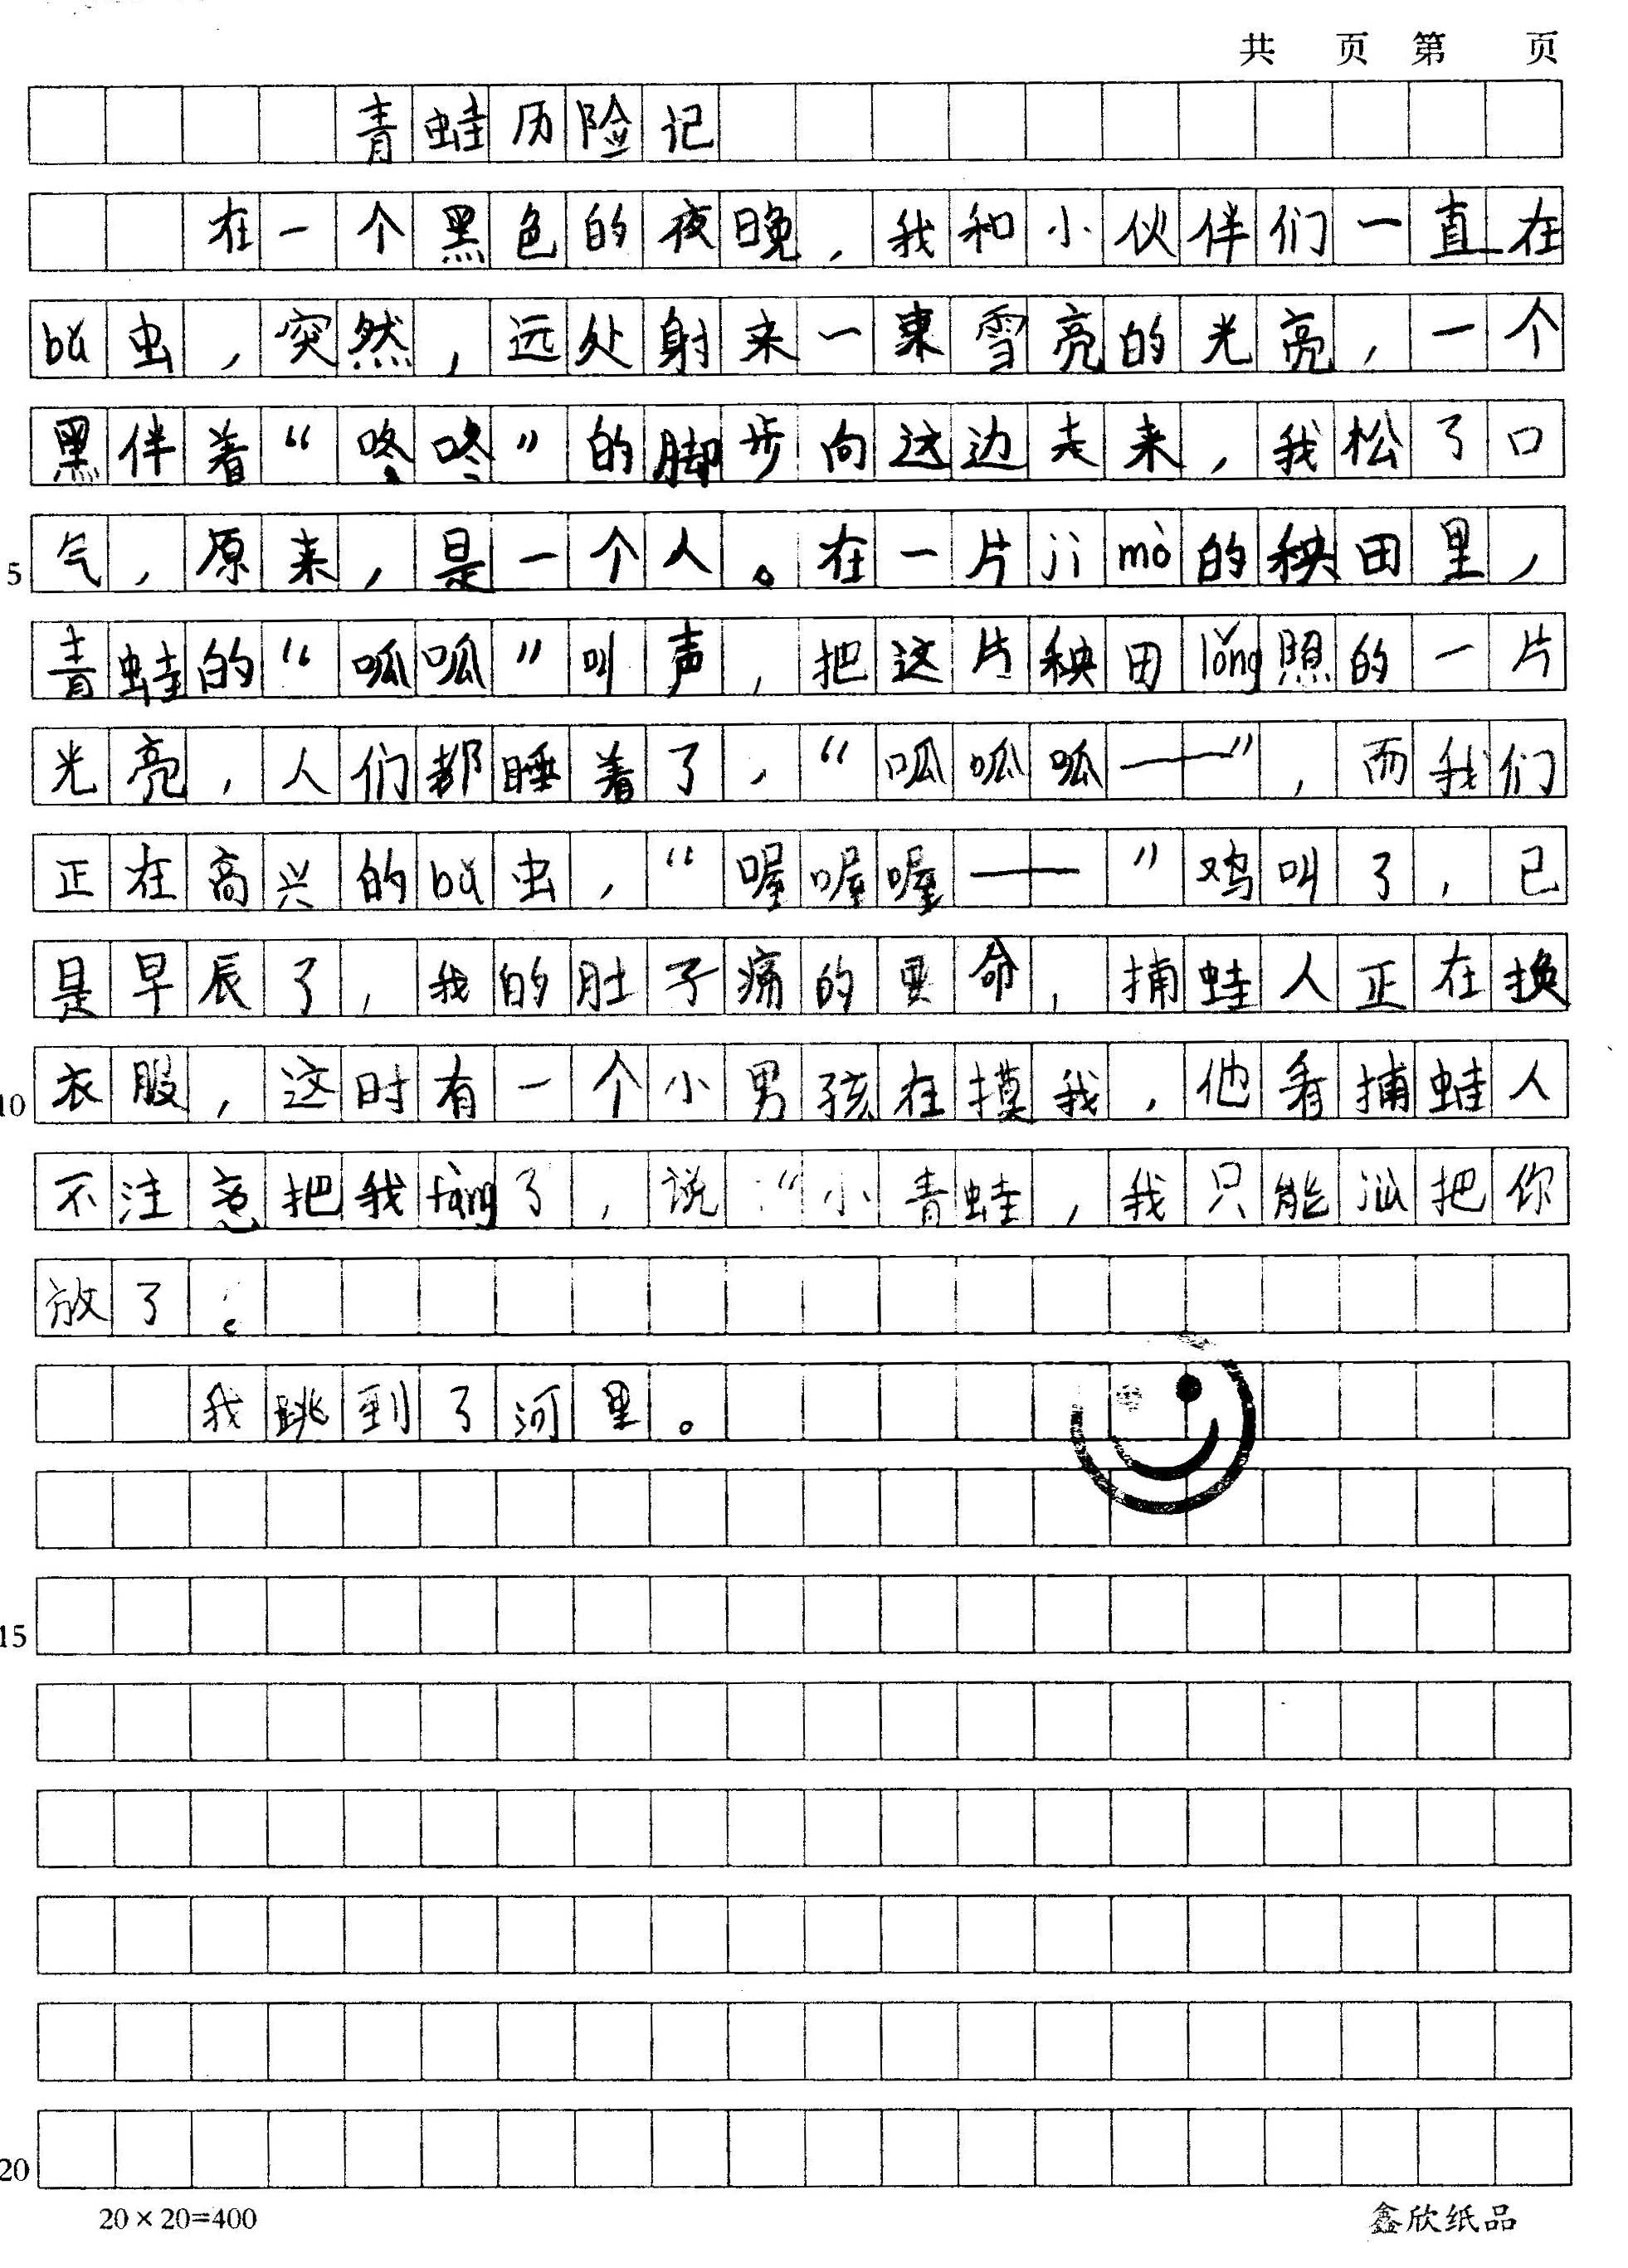 共 页 第 页
青蛙历险记
在一个黑色的夜晚，我和小伙伴们一直在
bǔ虫，突然，远处射来一束雪亮的光亮，一个
黑伴着“咚咚”的脚步向这边走来，我松了口
5 气，原来，是一个人。在一片jì mò的秧田里，
青蛙的“呱呱”叫声，把这片秧田lǒng照的一片
光亮，人们都睡着了，“呱呱呱——”，而我们
正在高兴的bǔ虫，“喔喔喔——”鸡叫了，已
是早辰了，我的肚子痛的要命，捕蛙人正在换
10 衣服，这时有一个小男孩在摸我，他看捕蛙人
不注意把我fàng了，说：“小青蛙，我只能把你
放了。
我跳到了河里。
15
20
20×20=400 鑫欣纸品